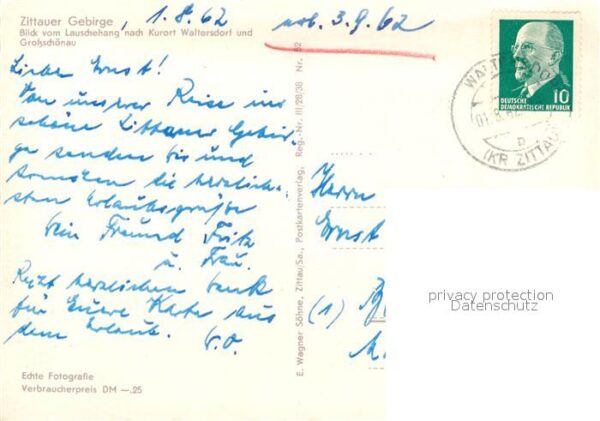 Zittauer Gebirge
, 1.8.62
Blick vom Lauschehang nach Kurort Waltersdorf und
Großschönau
3.9.62
Liebe Ernst!
Von unserer Reise ins
schöne Zittauer Gebir-
ge senden dir und
die herzlich-
sten Urlaubsgrüße
dein Freund Fritz
u. Frau.
herzlichen Dank
für Euere Karte aus
dem Urlaub.
Echte Fotografie
Verbraucherpreis DM —.25
E. Wagner Söhne, Zittau/Sa., Postkartenverlag, Reg.-Nr. III/28/30 Nr. 52
Herrn
Ernst
(1)
10
DEUTSCHE
DEMOKRATISCHE REPUBLIK
(KR ZITTAU)
privacy protection
Datenschutz